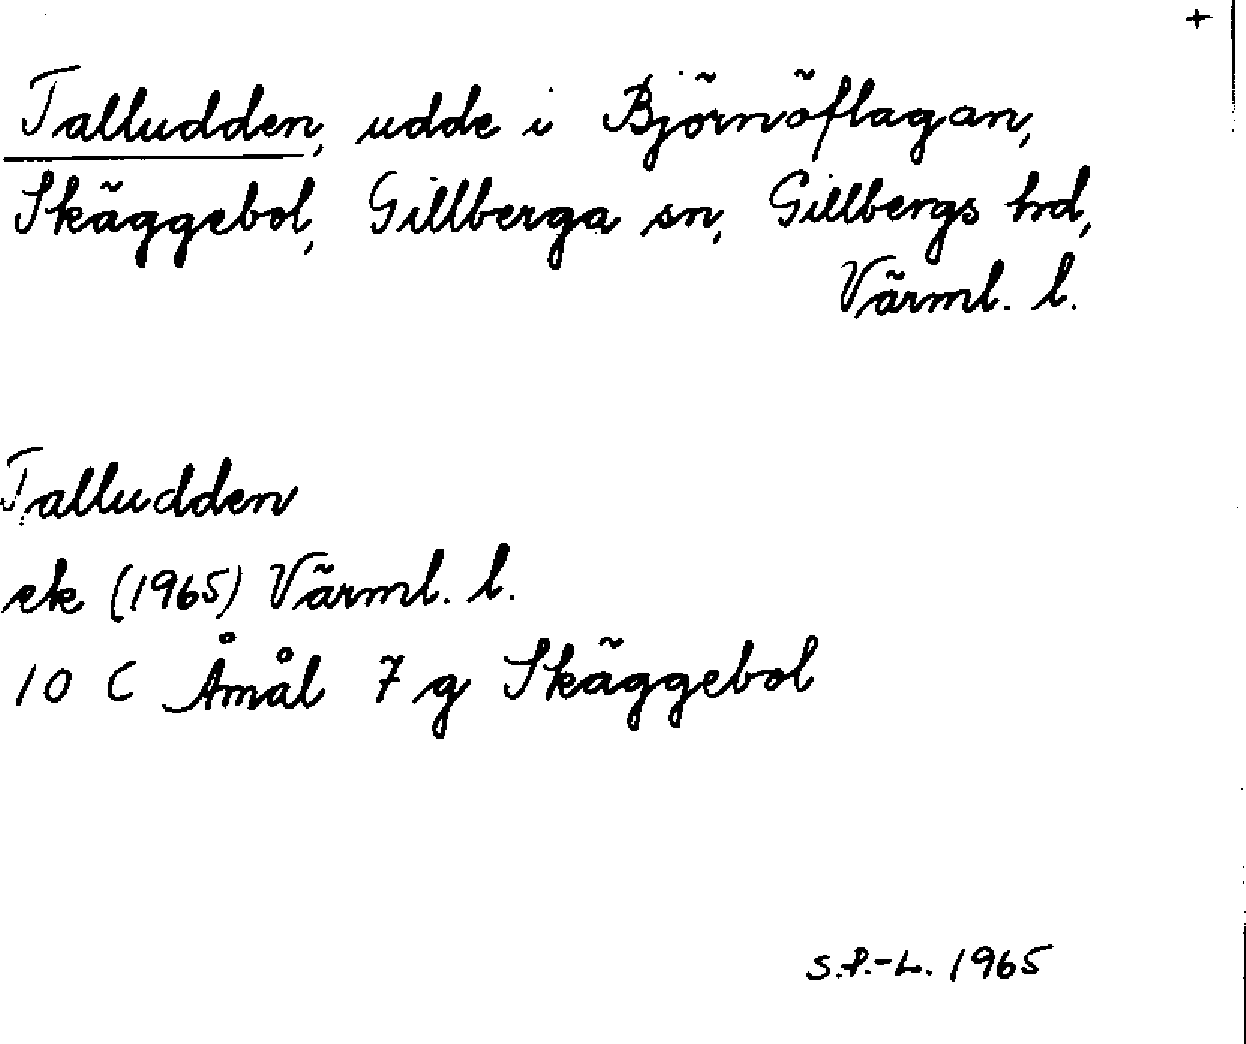 +
Talludden, udde i Björnöflagan,
Skäggebol, Gillberga sn, Gillbergs hd,
Värml. l.
Talludden
ek (1965) Värml. l.
10 C Åmål 7 g Skäggebol
S.P.-L. 1965